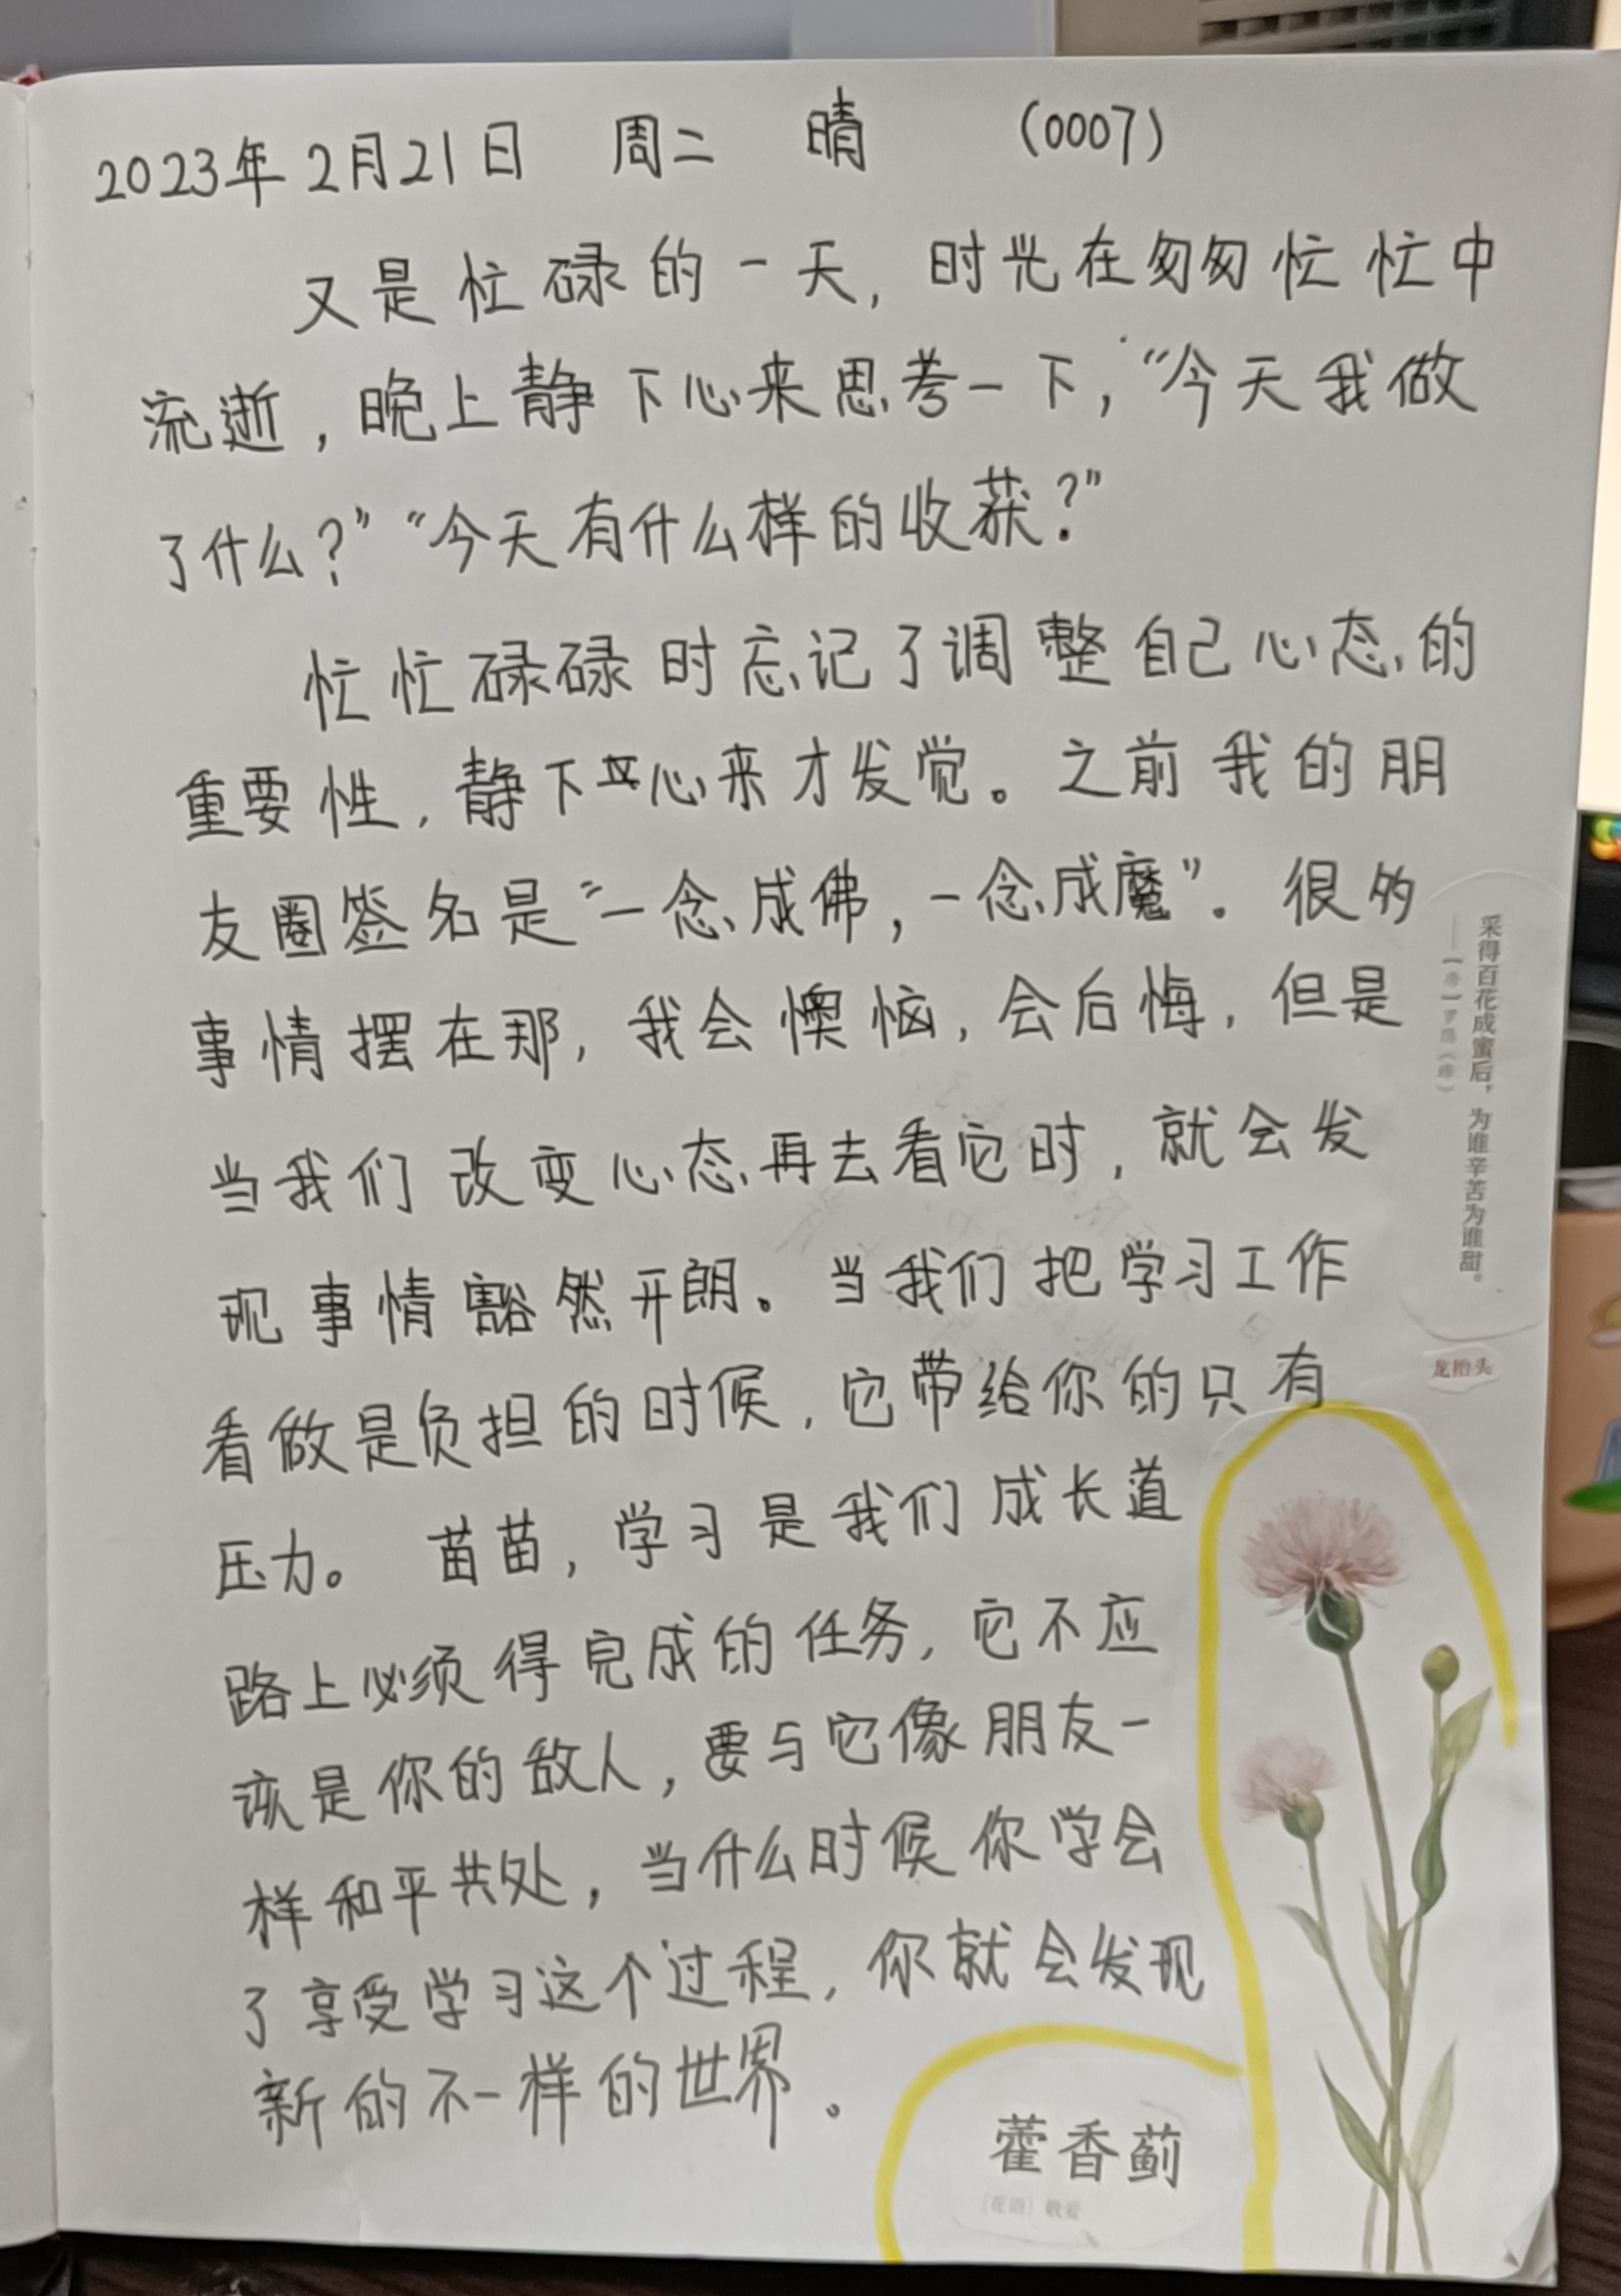 2023年2月21日 周二 晴 (0007)
又是忙碌的一天，时光在匆匆忙忙中
流逝，晚上静下心来思考一下，“今天我做
了什么？”“今天有什么样的收获？”
忙忙碌碌时忘记了调整自己心态的
重要性，静下心来才发觉。之前我的朋
友圈签名是“一念成佛，一念成魔”。很多
事情摆在那，我会懊恼，会后悔，但是
当我们改变心态再去看它时，就会发
现事情豁然开朗。当我们把学习工作
看做是负担的时候，它带给你的只有
压力。苗苗，学习是我们成长道
路上必须得完成的任务，它不应
该是你的敌人，要与它像朋友一
样和平共处，当什么时候你学会
了享受学习这个过程，你就会发现
新的不一样的世界。
采得百花成蜜后，为谁辛苦为谁甜。
——［唐］罗隐《蜂》
龙抬头
藿香蓟
［花语］敬爱